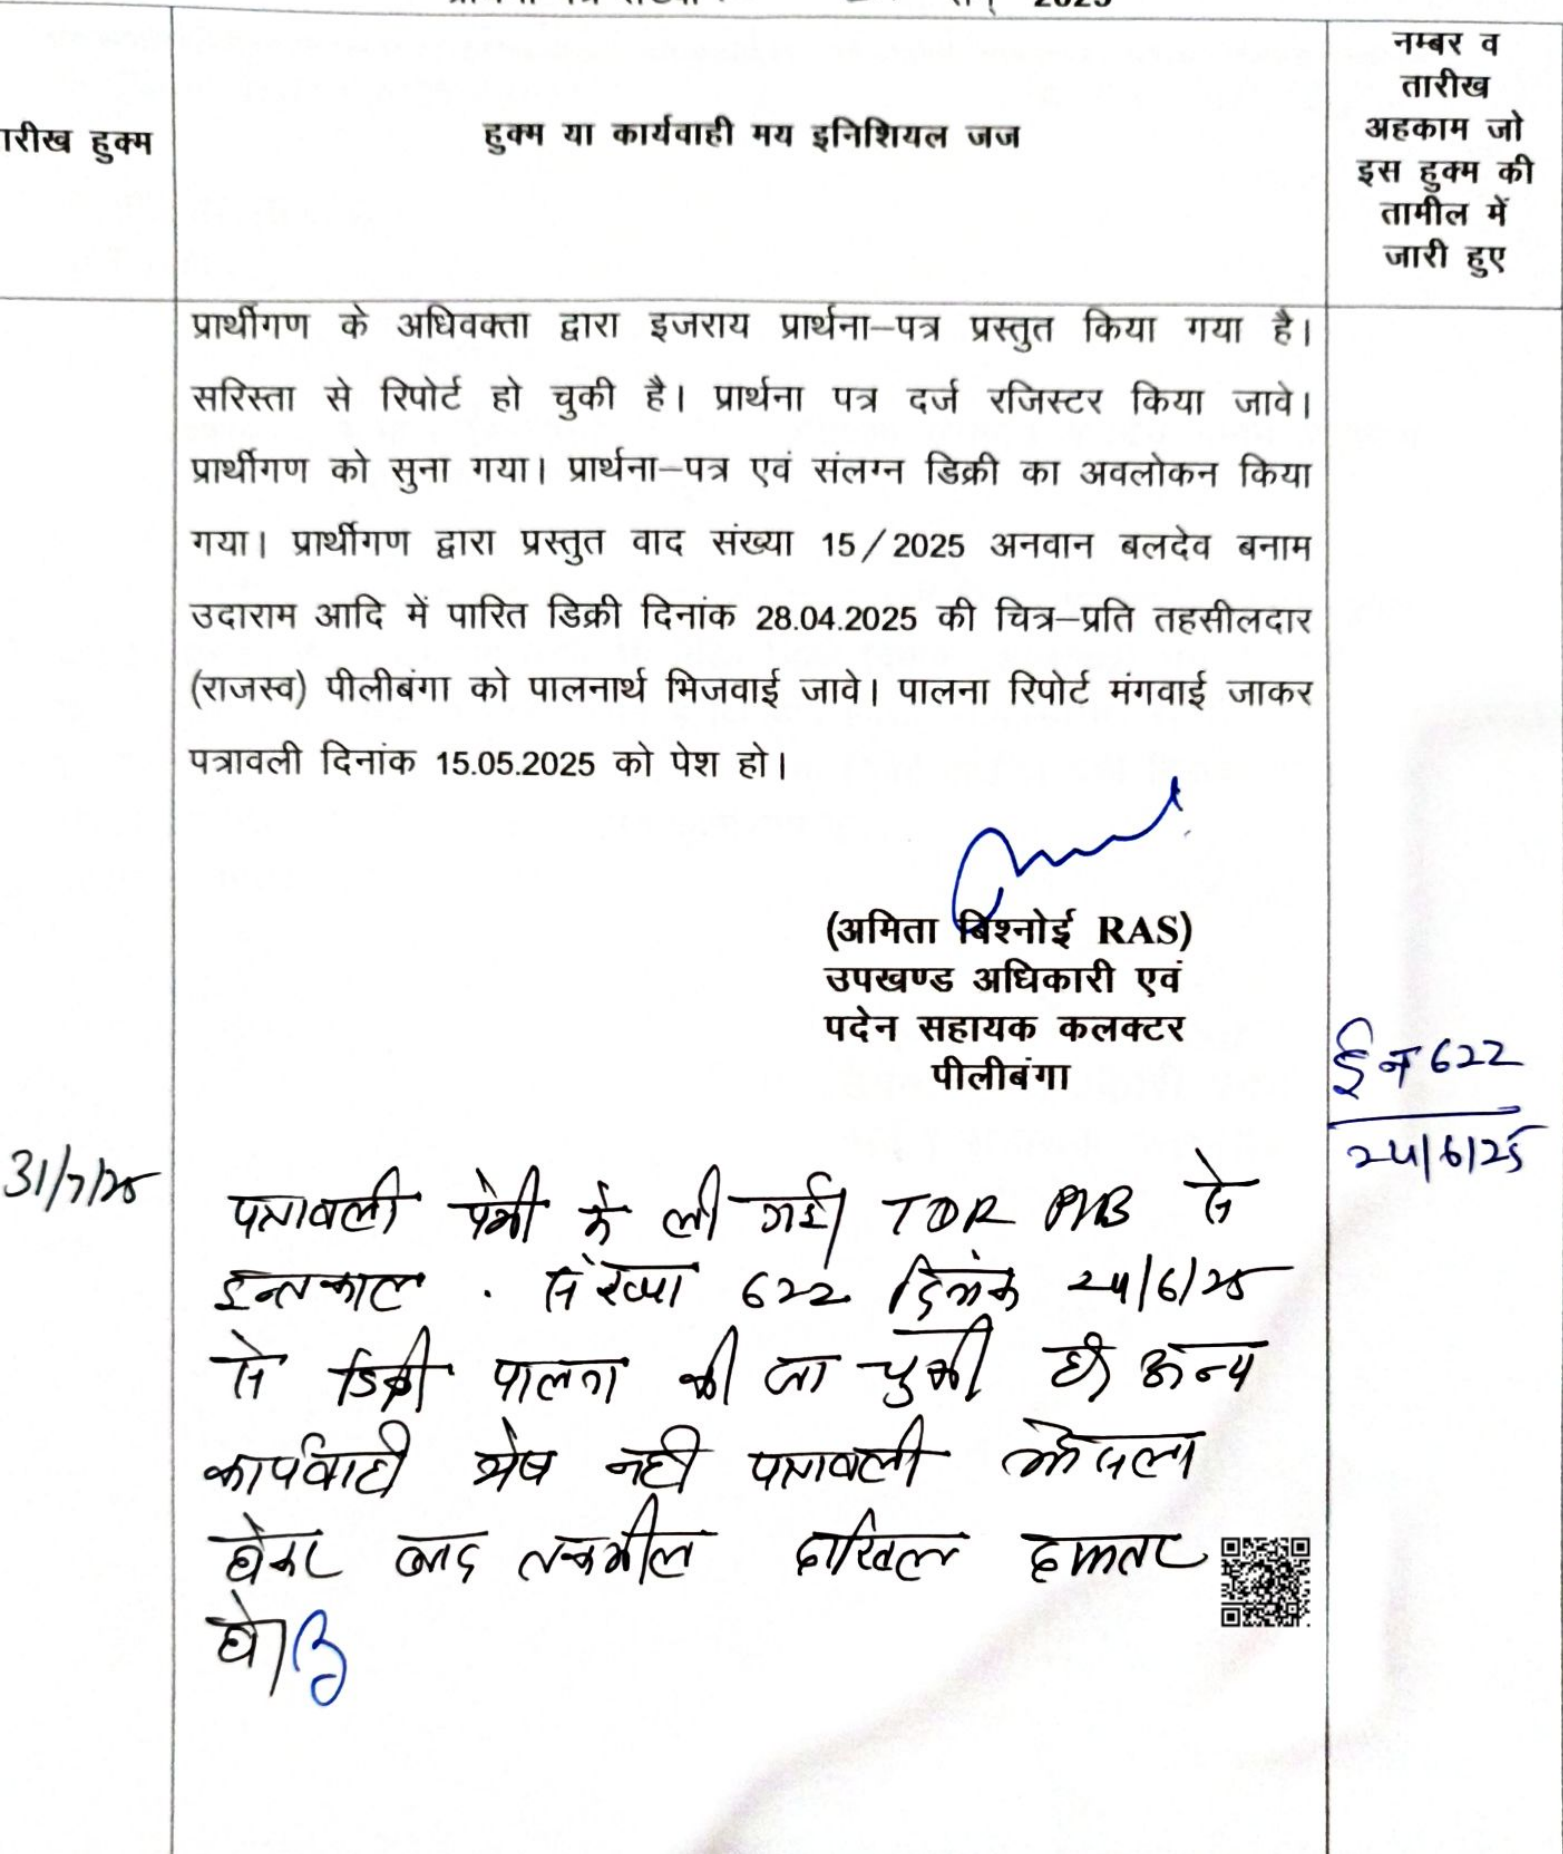 2025
तारीख हुक्म
हुक्म या कार्यवाही मय इनिशियल जज
नम्बर व
तारीख
अहकाम जो
इस हुक्म की
तामील में
जारी हुए
प्रार्थीगण के अधिवक्ता द्वारा इजराय प्रार्थना–पत्र प्रस्तुत किया गया है।
सरिस्ता से रिपोर्ट हो चुकी है। प्रार्थना पत्र दर्ज रजिस्टर किया जावे।
प्रार्थीगण को सुना गया। प्रार्थना–पत्र एवं संलग्न डिक्री का अवलोकन किया
गया। प्रार्थीगण द्वारा प्रस्तुत वाद संख्या 15/2025 अनवान बलदेव बनाम
उदाराम आदि में पारित डिक्री दिनांक 28.04.2025 की चित्र–प्रति तहसीलदार
(राजस्व) पीलीबंगा को पालनार्थ भिजवाई जावे। पालना रिपोर्ट मंगवाई जाकर
पत्रावली दिनांक 15.05.2025 को पेश हो।
(अमिता बिश्नोई RAS)
उपखण्ड अधिकारी एवं
पदेन सहायक कलक्टर
पीलीबंगा
ई न 622
24/6/25
31/7/25
पत्रावली पेशी मे ली गई। TDR PMB से
इन्तकाल संख्या 622 दिनांक 24/6/25
से डिक्री पालना की जा चुकी है। अन्य
कार्यवाही शेष नही पत्रावली फैसला
होकर बाद तकमील दाखिल दफ्तर
हो।